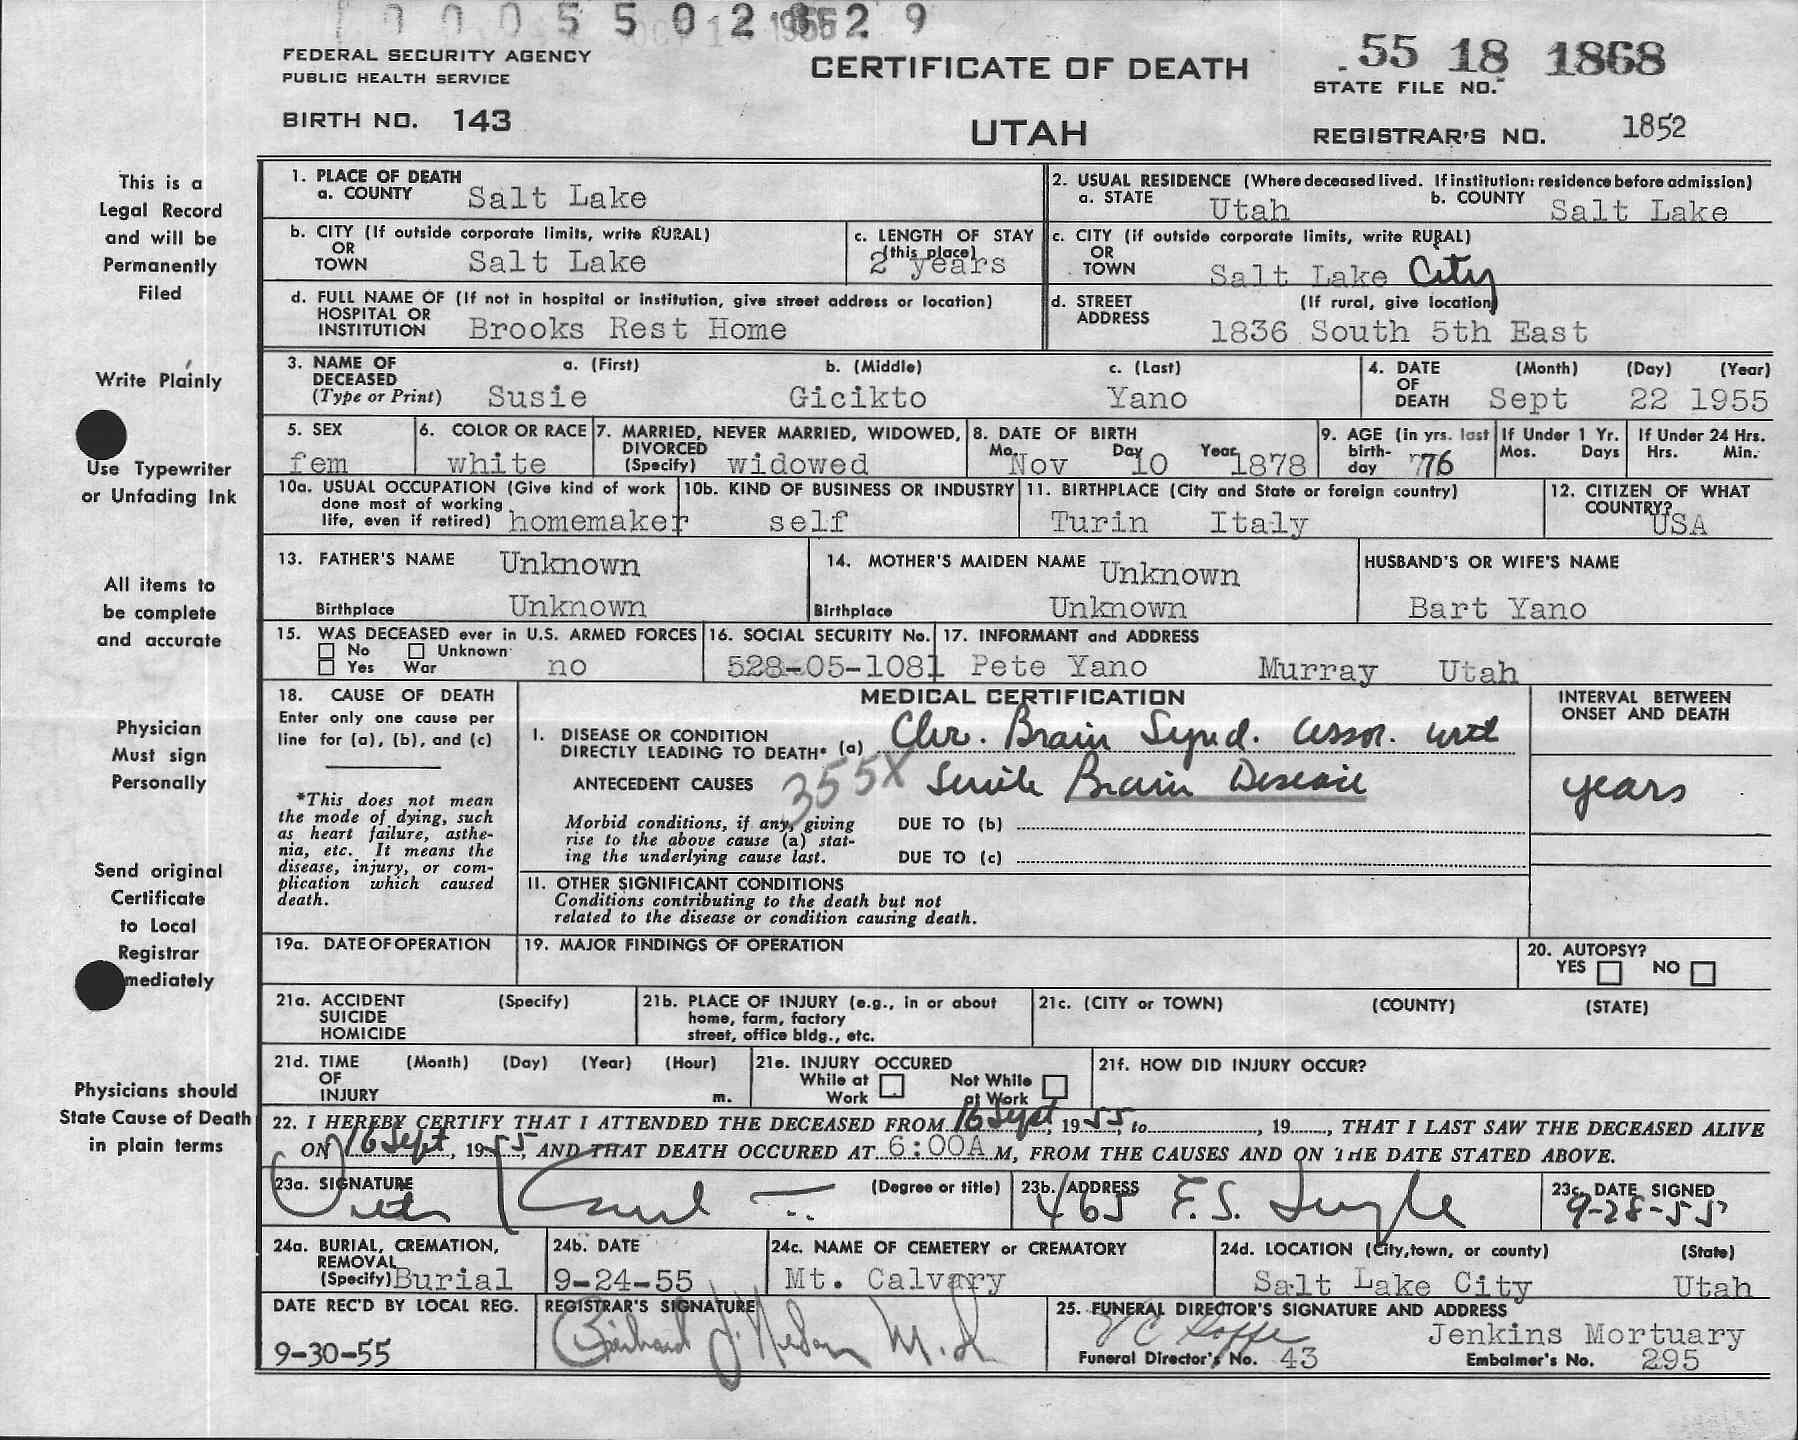 0005502829
FEDERAL SECURITY AGENCY
PUBLIC HEALTH SERVICE
BIRTH NO. 143
CERTIFICATE OF DEATH
UTAH
55 18 1868
STATE FILE NO.
REGISTRAR'S NO. 1852
This is a
Legal Record
and will be
Permanently
Filed
Write Plainly
Use Typewriter
or Unfading Ink
All items to
be complete
and accurate
Physician
Must sign
Personally
Send original
Certificate
to Local
Registrar
mediately
Physicians should
State Cause of Death
in plain terms
1. PLACE OF DEATH
a. COUNTY Salt Lake
2. USUAL RESIDENCE (Where deceased lived. If institution: residence before admission)
a. STATE Utah b. COUNTY Salt Lake
b. CITY (If outside corporate limits, write RURAL)
OR
TOWN Salt Lake
c. LENGTH OF STAY
(this place)
2 years
c. CITY (if outside corporate limits, write RURAL)
OR
TOWN Salt Lake City
d. FULL NAME OF (If not in hospital or institution, give street address or location)
HOSPITAL OR
INSTITUTION Brooks Rest Home
d. STREET (If rural, give location)
ADDRESS
1836 South 5th East
3. NAME OF a. (First) b. (Middle) c. (Last)
DECEASED
(Type or Print) Susie Gicikto Yano
4. DATE (Month) (Day) (Year)
OF
DEATH Sept 22 1955
5. SEX
fem
6. COLOR OR RACE
white
7. MARRIED, NEVER MARRIED, WIDOWED,
DIVORCED
(Specify) widowed
8. DATE OF BIRTH
Mo. Day Year
Nov 10 1878
9. AGE (in yrs. last
birth-
day 76
If Under 1 Yr.
Mos. Days
If Under 24 Hrs.
Hrs. Min.
10a. USUAL OCCUPATION (Give kind of work
done most of working
life, even if retired) homemaker
10b. KIND OF BUSINESS OR INDUSTRY
self
11. BIRTHPLACE (City and State or foreign country)
Turin Italy
12. CITIZEN OF WHAT
COUNTRY?
USA
13. FATHER'S NAME Unknown
Birthplace Unknown
14. MOTHER'S MAIDEN NAME Unknown
Birthplace Unknown
HUSBAND'S OR WIFE'S NAME
Bart Yano
15. WAS DECEASED ever in U.S. ARMED FORCES
No Unknown
Yes War no
16. SOCIAL SECURITY No.
528-05-1081
17. INFORMANT and ADDRESS
Pete Yano Murray Utah
18. CAUSE OF DEATH
Enter only one cause per
line for (a), (b), and (c)
*This does not mean
the mode of dying, such
as heart failure, asthe-
nia, etc. It means the
disease, injury, or com-
plication which caused
death.
MEDICAL CERTIFICATION
I. DISEASE OR CONDITION
DIRECTLY LEADING TO DEATH* (a) Chr. Brain Synd. assoc. with
ANTECEDENT CAUSES 355X Senile Brain Disease
Morbid conditions, if any, giving
rise to the above cause (a) stat-
ing the underlying cause last.
DUE TO (b)
DUE TO (c)
II. OTHER SIGNIFICANT CONDITIONS
Conditions contributing to the death but not
related to the disease or condition causing death.
INTERVAL BETWEEN
ONSET AND DEATH
years
19a. DATE OF OPERATION
19. MAJOR FINDINGS OF OPERATION
20. AUTOPSY?
YES NO
21a. ACCIDENT (Specify)
SUICIDE
HOMICIDE
21b. PLACE OF INJURY (e.g., in or about
home, farm, factory
street, office bldg., etc.
21c. (CITY or TOWN) (COUNTY) (STATE)
21d. TIME (Month) (Day) (Year) (Hour)
OF
INJURY m.
21e. INJURY OCCURED
While at Not While
Work at Work
21f. HOW DID INJURY OCCUR?
22. I HEREBY CERTIFY THAT I ATTENDED THE DECEASED FROM 16 Sept, 1955, to , 19 , THAT I LAST SAW THE DECEASED ALIVE
ON 16 Sept, 1955, AND THAT DEATH OCCURED AT 6:00A M, FROM THE CAUSES AND ON THE DATE STATED ABOVE.
23a. SIGNATURE (Degree or title)
23b. ADDRESS
465
23c. DATE SIGNED
9-28-55
24a. BURIAL, CREMATION,
REMOVAL
(Specify) Burial
24b. DATE
9-24-55
24c. NAME OF CEMETERY or CREMATORY
Mt. Calvary
24d. LOCATION (City, town, or county) (State)
Salt Lake City Utah
DATE REC'D BY LOCAL REG.
9-30-55
REGISTRAR'S SIGNATURE
25. FUNERAL DIRECTOR'S SIGNATURE AND ADDRESS
Jenkins Mortuary
Funeral Director's No. 43 Embalmer's No. 295